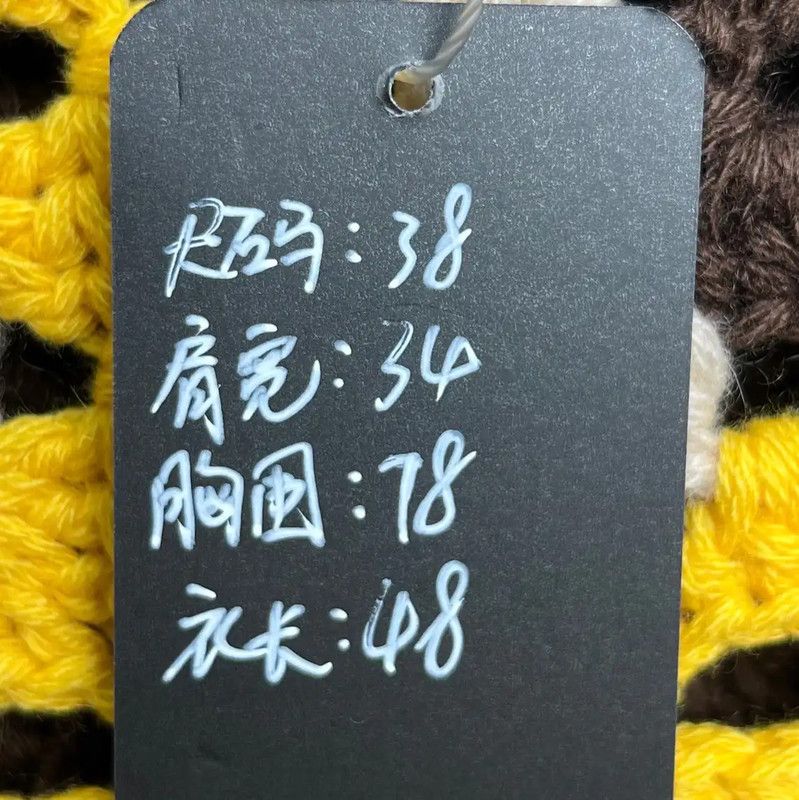 尺码:38
肩宽:34
胸围:78
衣长:48